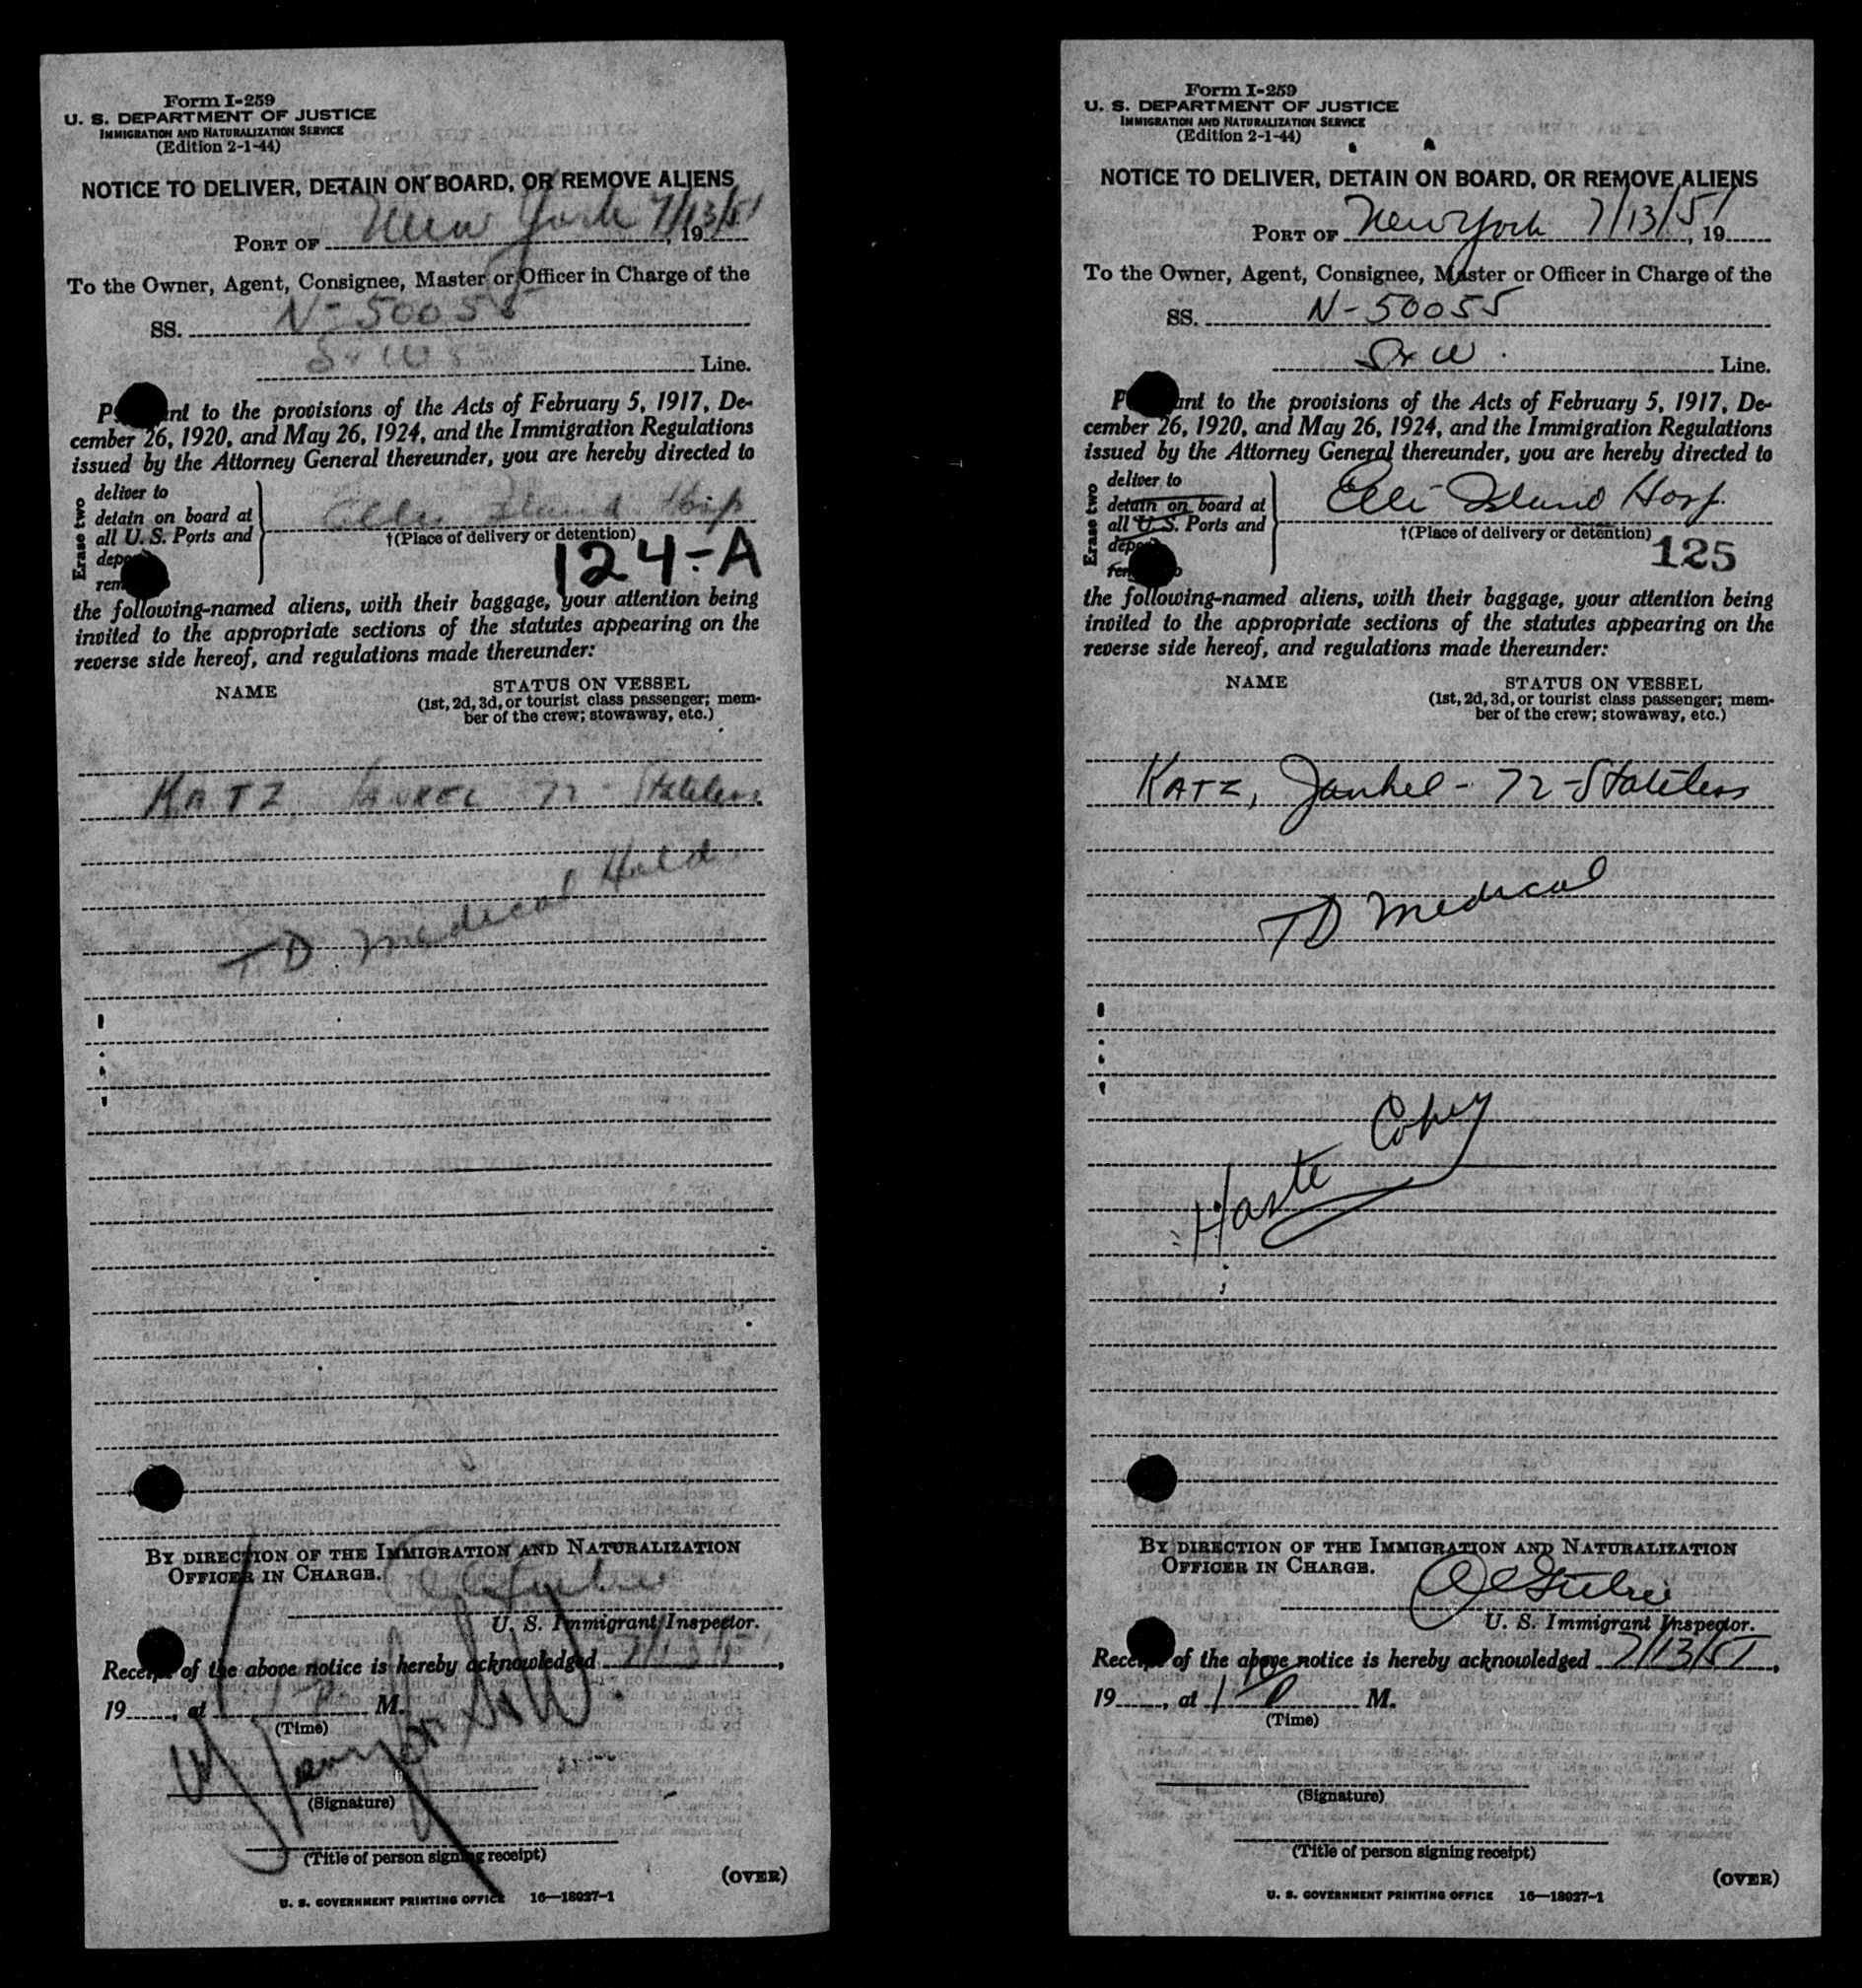 Form I-259
U. S. DEPARTMENT OF JUSTICE
IMMIGRATION AND NATURALIZATION SERVICE
(Edition 2-1-44)
NOTICE TO DELIVER, DETAIN ON BOARD, OR REMOVE ALIENS
PORT OF New York 7/13/51, 19
To the Owner, Agent, Consignee, Master or Officer in Charge of the
SS. N-50055
Line.
nt to the provisions of the Acts of February 5, 1917, De-
cember 26, 1920, and May 26, 1924, and the Immigration Regulations
issued by the Attorney General thereunder, you are hereby directed to
Erase two
deliver to
detain on board at
all U. S. Ports and
dep
rem
Island Hosp
†(Place of delivery or detention)
124-A
the following-named aliens, with their baggage, your attention being
invited to the appropriate sections of the statutes appearing on the
reverse side hereof, and regulations made thereunder:
NAME
STATUS ON VESSEL
(1st, 2d, 3d, or tourist class passenger; mem-
ber of the crew; stowaway, etc.)
KATZ, JANKEL 72 - Stateless
TD Medical Held
BY DIRECTION OF THE IMMIGRATION AND NATURALIZATION
OFFICER IN CHARGE.
U. S. Immigrant Inspector.
Rece of the above notice is hereby acknowledged 7/13/51,
19, at M.
(Time)
(Signature)
(Title of person signing receipt)
(OVER)
U. S. GOVERNMENT PRINTING OFFICE 16—18027-1
Form I-259
U. S. DEPARTMENT OF JUSTICE
IMMIGRATION AND NATURALIZATION SERVICE
(Edition 2-1-44)
NOTICE TO DELIVER, DETAIN ON BOARD, OR REMOVE ALIENS
PORT OF New York 7/13/51, 19
To the Owner, Agent, Consignee, Master or Officer in Charge of the
SS. N-50055
S & W. Line.
P ant to the provisions of the Acts of February 5, 1917, De-
cember 26, 1920, and May 26, 1924, and the Immigration Regulations
issued by the Attorney General thereunder, you are hereby directed to
Erase two
deliver to
detain on board at
all U. S. Ports and
dep
Island Hosp.
†(Place of delivery or detention)
125
the following-named aliens, with their baggage, your attention being
invited to the appropriate sections of the statutes appearing on the
reverse side hereof, and regulations made thereunder:
NAME
STATUS ON VESSEL
(1st, 2d, 3d, or tourist class passenger; mem-
ber of the crew; stowaway, etc.)
KATZ, Jankel - 72 - Stateless
TD Medical
Haste Copy
BY DIRECTION OF THE IMMIGRATION AND NATURALIZATION
OFFICER IN CHARGE.
U. S. Immigrant Inspector.
Rece of the above notice is hereby acknowledged 7/13/51,
19, at 1 P M.
(Time)
(Signature)
(Title of person signing receipt)
(OVER)
U. S. GOVERNMENT PRINTING OFFICE 16—18027-1